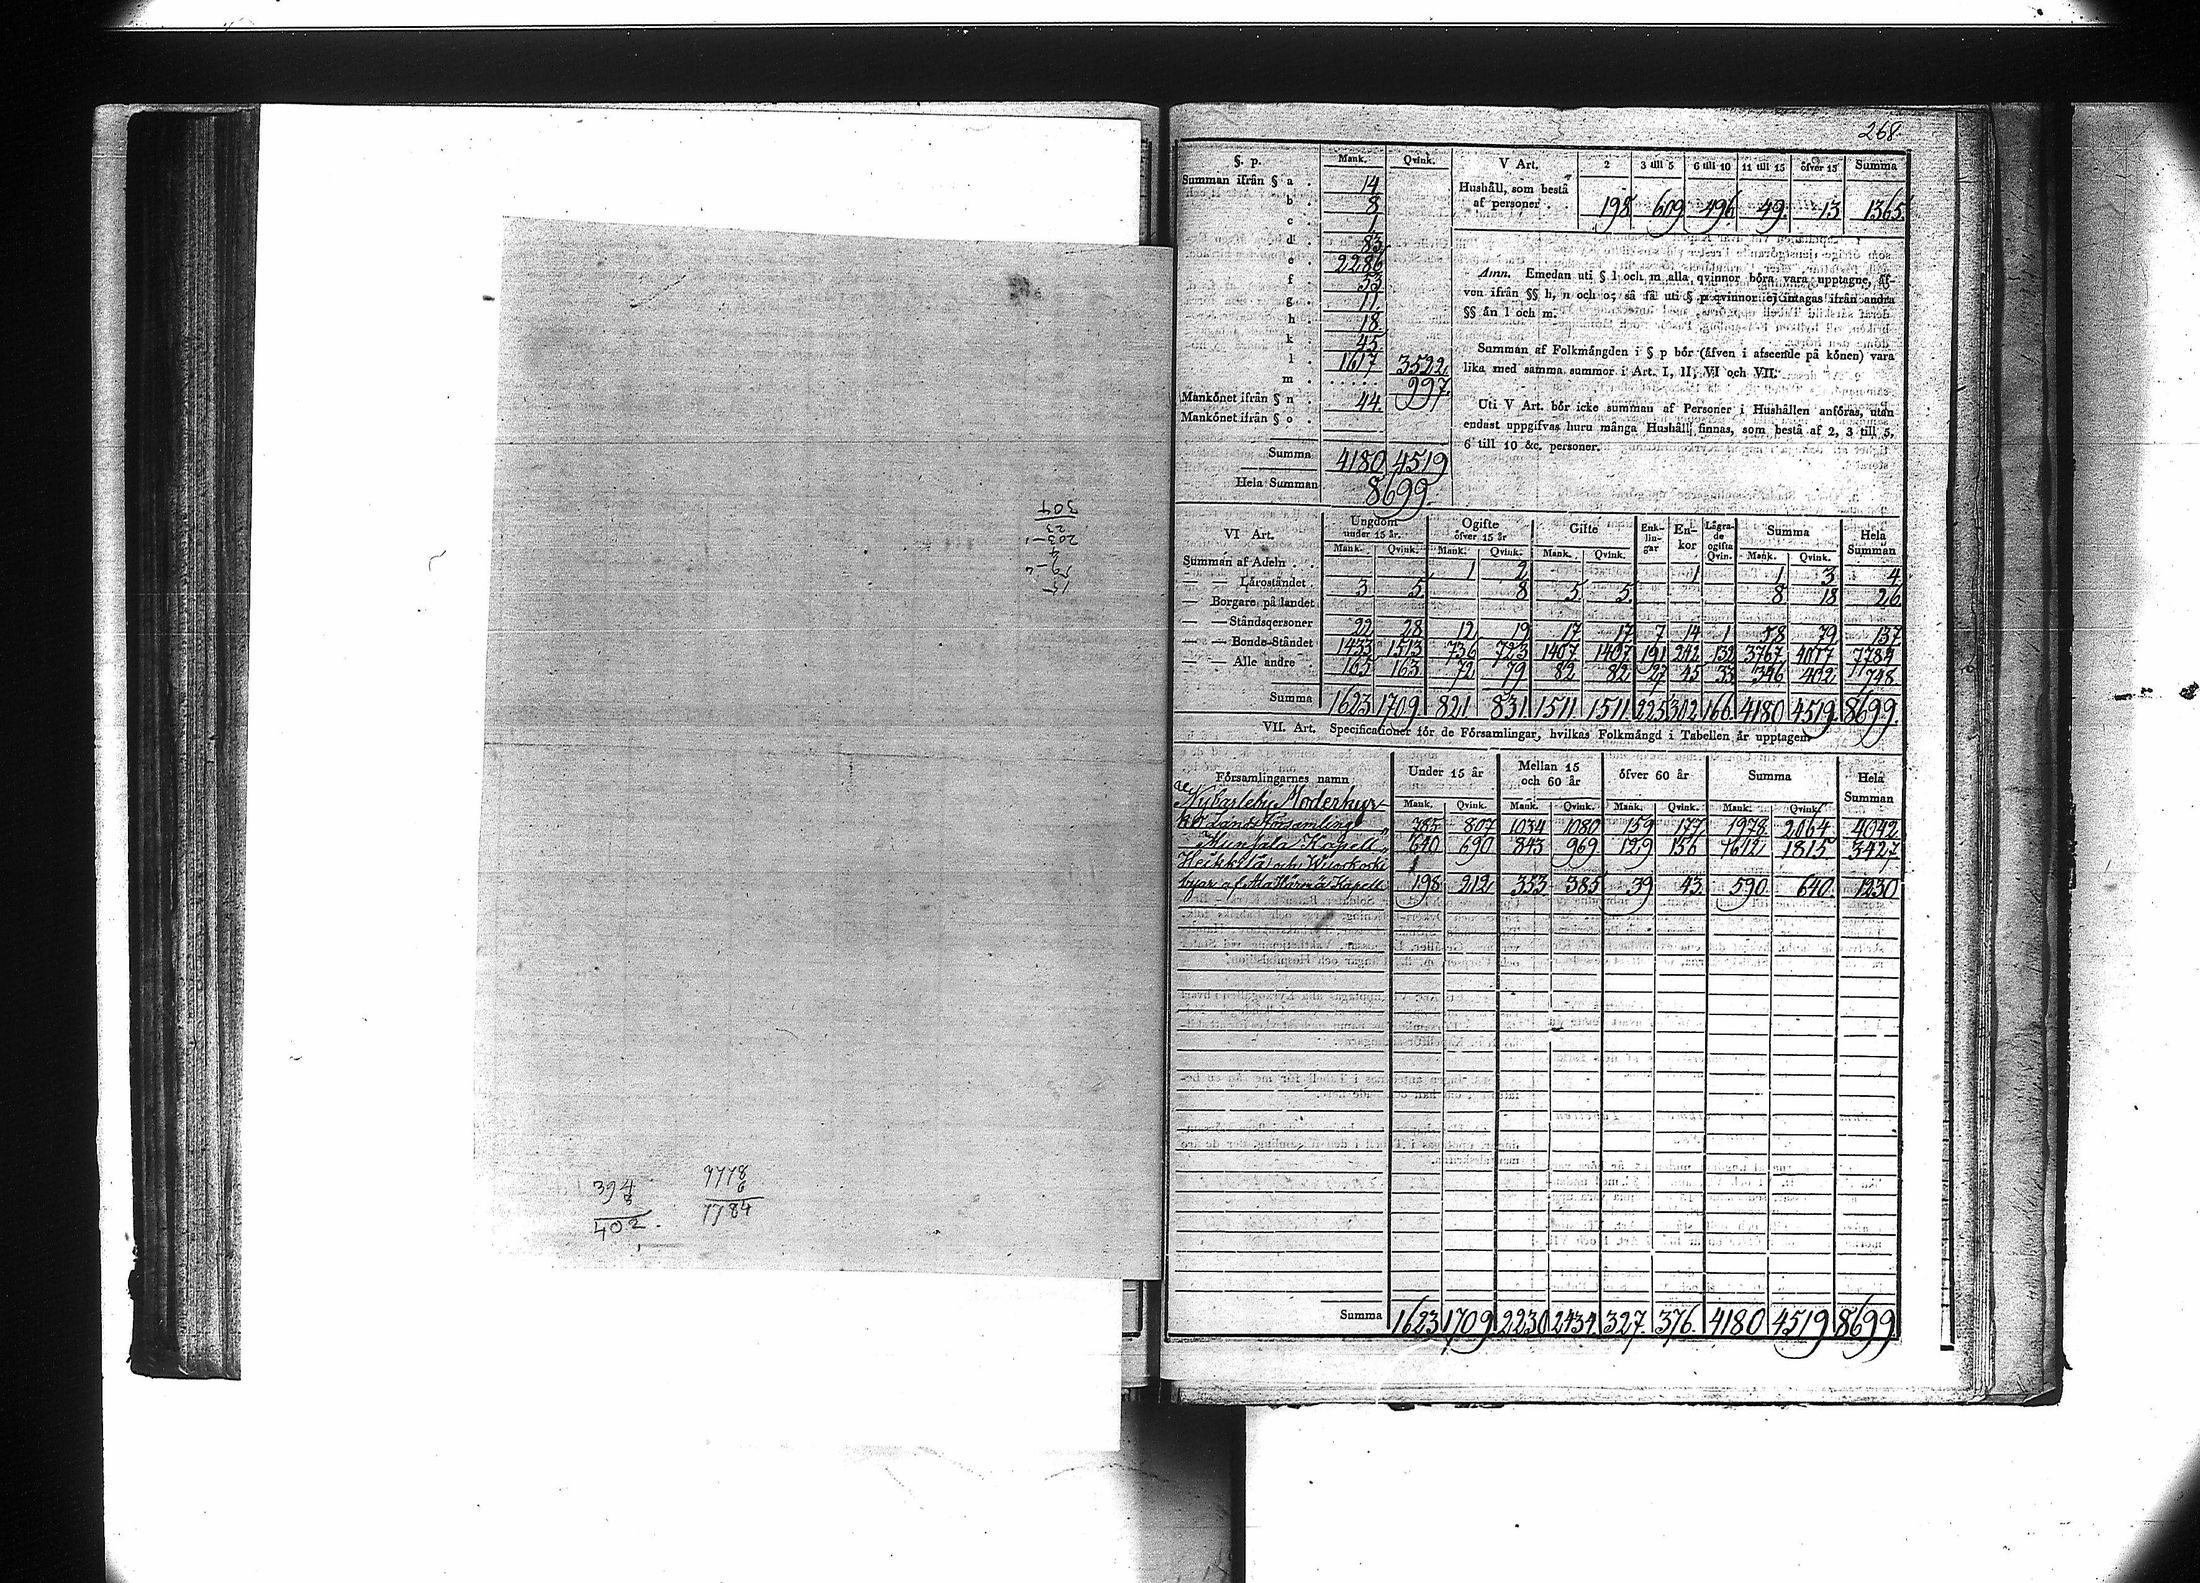 268.
§. p. Mank. Qvink.
Summan ifrån § a . 14
b . 8
c . 1
d . 83
e . 2286
f . 53
g . 11
h . 18
k . 45
l . 1617 3522
m . ...... 997
Mankönet ifrån § n . 44
Mankönet ifrån § o .
Summa 4180 4519
Hela Summan 8699
V Art. 2 3 till 5 6 till 10 11 till 15 öfver 15 Summa
Hushåll, som bestå
af personer . . 198 609 496 49 13 1365
Anm. Emedan uti § l och m alla qvinnor böra vara upptagne, äf-
ven ifrån §§ h, n och o; så få uti § p qvinnor ej intagas ifrån andra
§§ än l och m.
Summan af Folkmängden i § p bör (äfven i afseende på könen) vara
lika med samma summor i Art. I, II, VI och VII.
Uti V Art. bör icke summan af Personer i Hushållen anföras, utan
endast uppgifvas huru många Hushåll finnas, som bestå af 2, 3 till 5,
6 till 10 &c. personer.
VI Art. Ungdom under 15 år. Ogifte öfver 15 år Gifte Enk-lin-gar En-kor Lägra-de ogifta Qvin. Summa Hela Summan
Mank. Qvink. Mank. Qvink. Mank. Qvink. Mank. Qvink.
Summan af Adeln . . 1 2 1 1 3 4
— — Läroståndet . 3 5 8 5 5 8 18 26
— Borgare på landet
— — Ståndspersoner 22 28 12 19 17 17 7 14 1 58 79 137
— — Bonde-Ståndet 1433 1513 736 723 1407 1407 191 242 132 3767 4017 7784
— — Alle andre . 165 163 72 79 82 82 27 45 33 346 402 748
Summa 1623 1709 821 831 1511 1511 225 302 166 4180 4519 8699
VII. Art. Specificationer för de Församlingar, hvilkas Folkmängd i Tabellen är upptagen
Församlingarnes namn Under 15 år Mellan 15 och 60 år öfver 60 år Summa Hela Summan
Mank. Qvink. Mank. Qvink. Mank. Qvink. Mank. Qvink.
Nykarleby Moderkyr-
ko Landsförsamling 785 807 1034 1080 159 177 1978 2064 4042
Munsala Kapell 640 690 843 969 129 156 1612 1815 3427
Heikkilä och Wuoskoski
byar af Ala Härmä Kapell 198 212 353 385 39 43 590 640 1230
Summa 1623 1709 2230 2434 327 376 4180 4519 8699
394
8
402
7778
6
7784